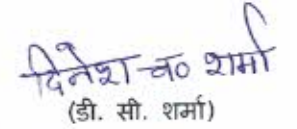 दिनेश च० शर्मा
(डी. सी. शर्मा)